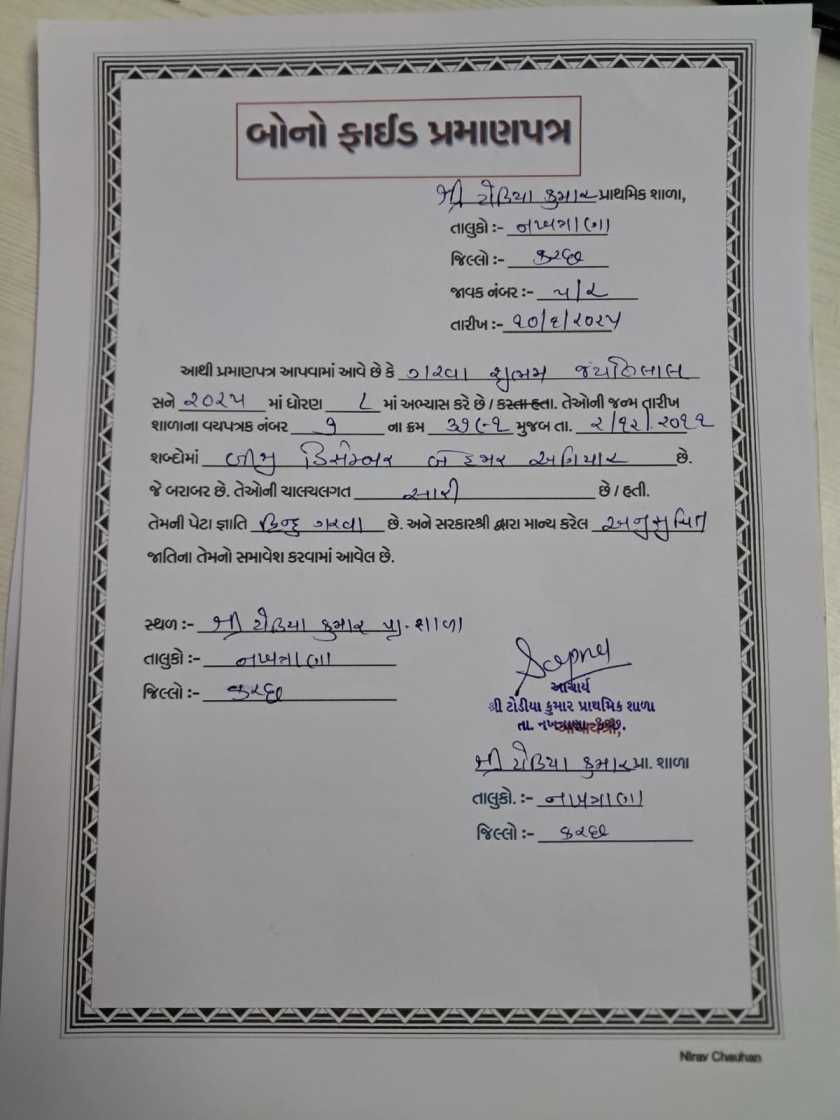 બોનો ફાઈડ પ્રમાણપત્ર
શ્રી ટોડિયા કુમાર પ્રાથમિક શાળા,
તાલુકો :- નખત્રાણા
જિલ્લો :- કચ્છ
જાવક નંબર :- ૫/૨
તારીખ :- ૧૦/૬/૨૦૨૫
આથી પ્રમાણપત્ર આપવામાં આવે છે કે ગરવા શુભમ જયંતિલાલ
સને ૨૦૨૫ માં ધોરણ ૮ માં અભ્યાસ કરે છે / કરતા હતા. તેઓની જન્મ તારીખ
શાળાના વયપત્રક નંબર ૧ ના ક્રમ ૩૧૯૧ મુજબ તા. ૨/૧૨/૨૦૧૧
શબ્દોમાં બીજી ડિસેમ્બર બે હજાર અગિયાર છે.
જે બરાબર છે. તેઓની ચાલચલગત સારી છે / હતી.
તેમની પેટા જ્ઞાતિ હિન્દુ ગરવા છે. અને સરકારશ્રી દ્વારા માન્ય કરેલ અનુસુચિત
જાતિના તેમનો સમાવેશ કરવામાં આવેલ છે.
સ્થળ :- શ્રી ટોડિયા કુમાર પ્રા. શાળા
તાલુકો :- નખત્રાણા
જિલ્લો :- કચ્છ
આચાર્ય
શ્રી ટોડીયા કુમાર પ્રાથમિક શાળા
તા. નખત્રાણા-કચ્છ.
શ્રી ટોડિયા કુમાર પ્રા. શાળા
તાલુકો. :- નખત્રાણા
જિલ્લો :- કચ્છ
Nirav Chauhan